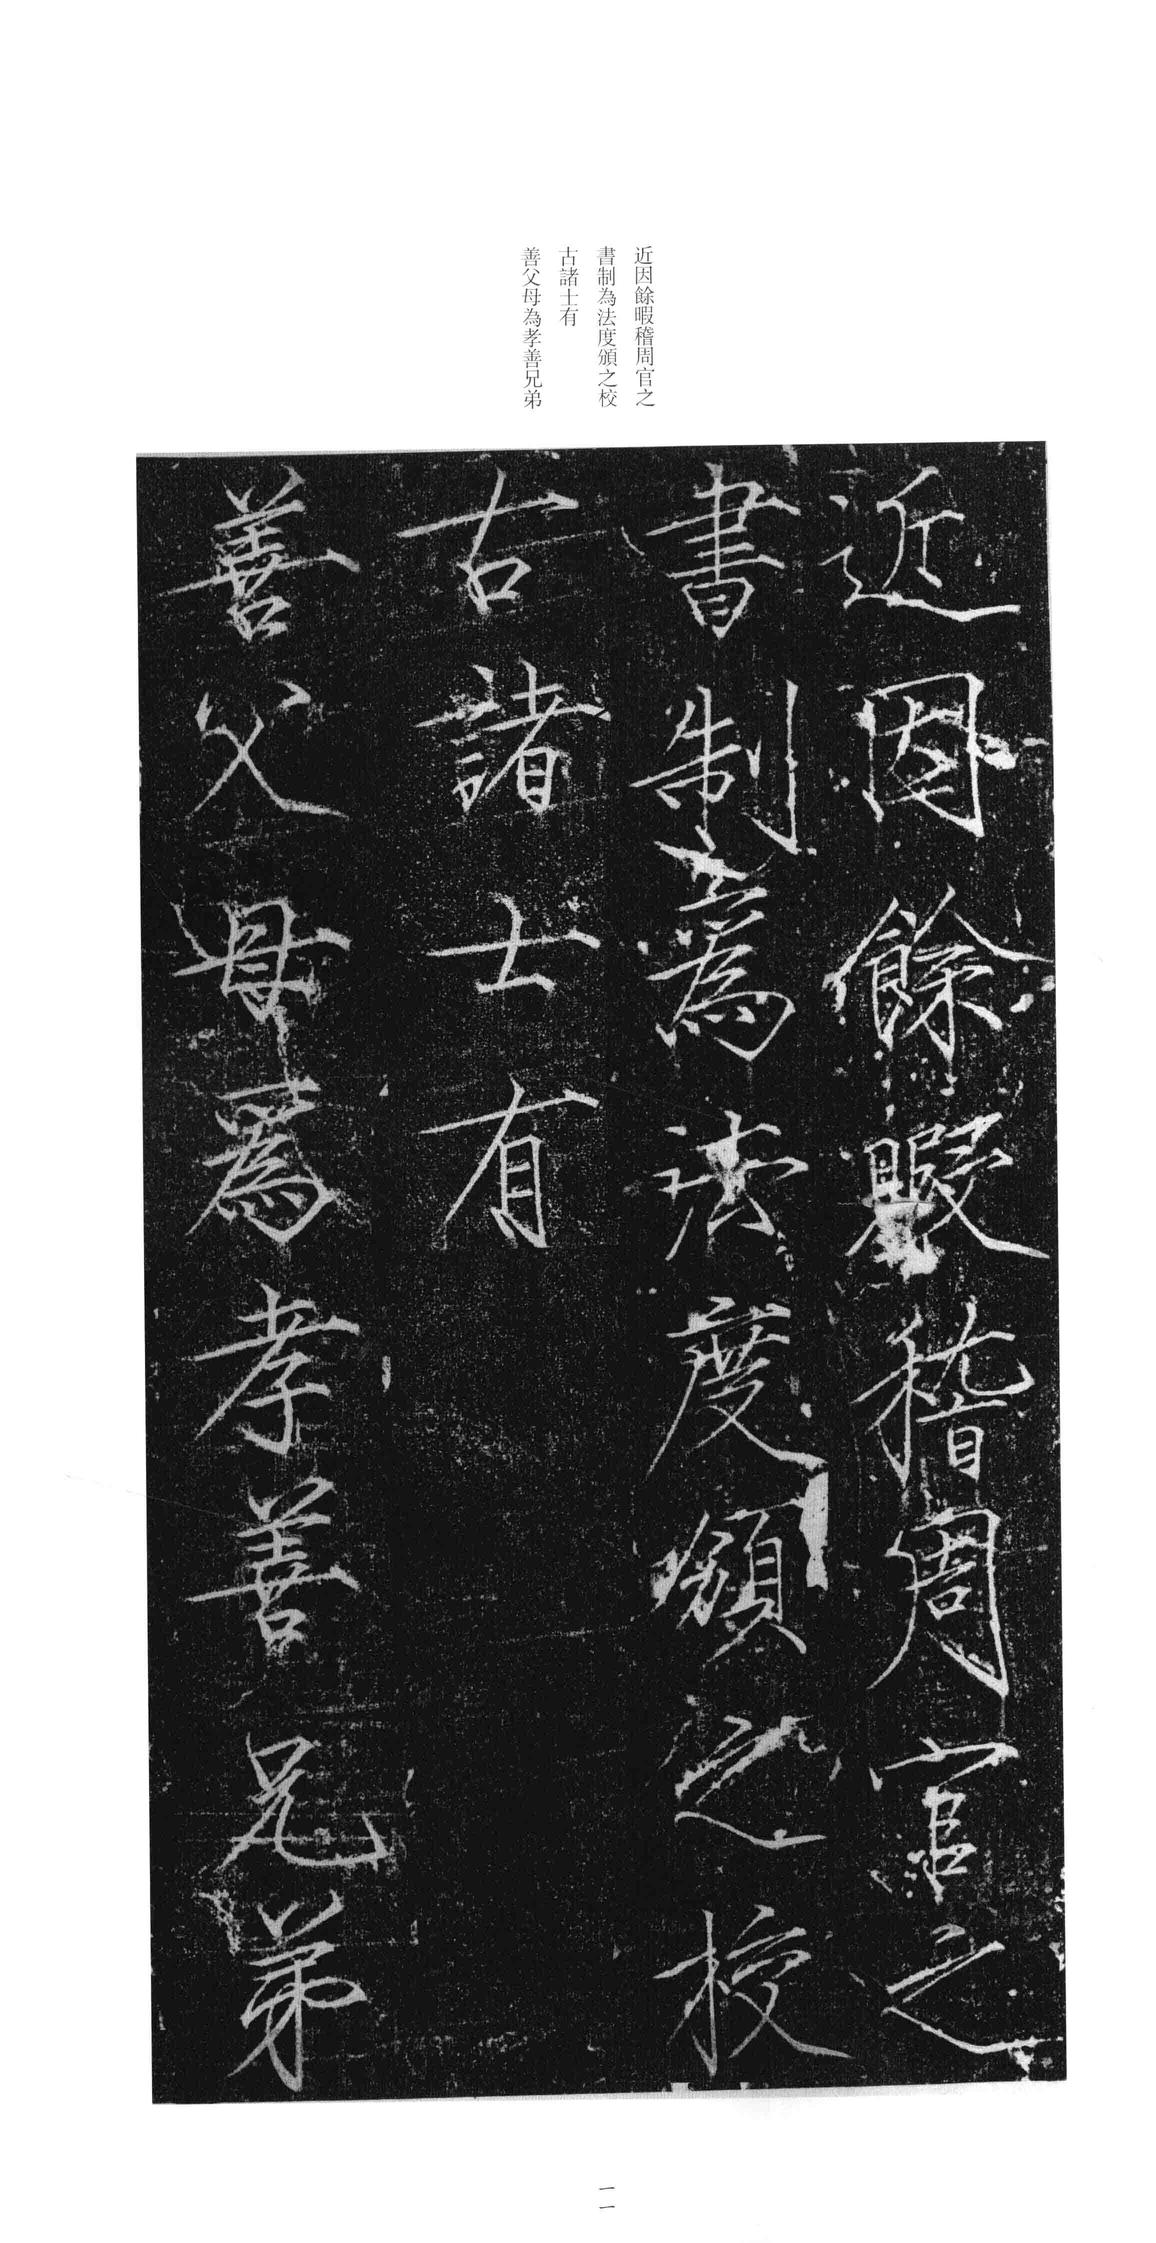 近因餘暇稽周官之
書制為法度頒之校
古諸士有
善父母為孝善兄弟
近因餘暇稽周官之
書制為法度頒之校
古諸士有
善父母爲孝善兄弟
一一